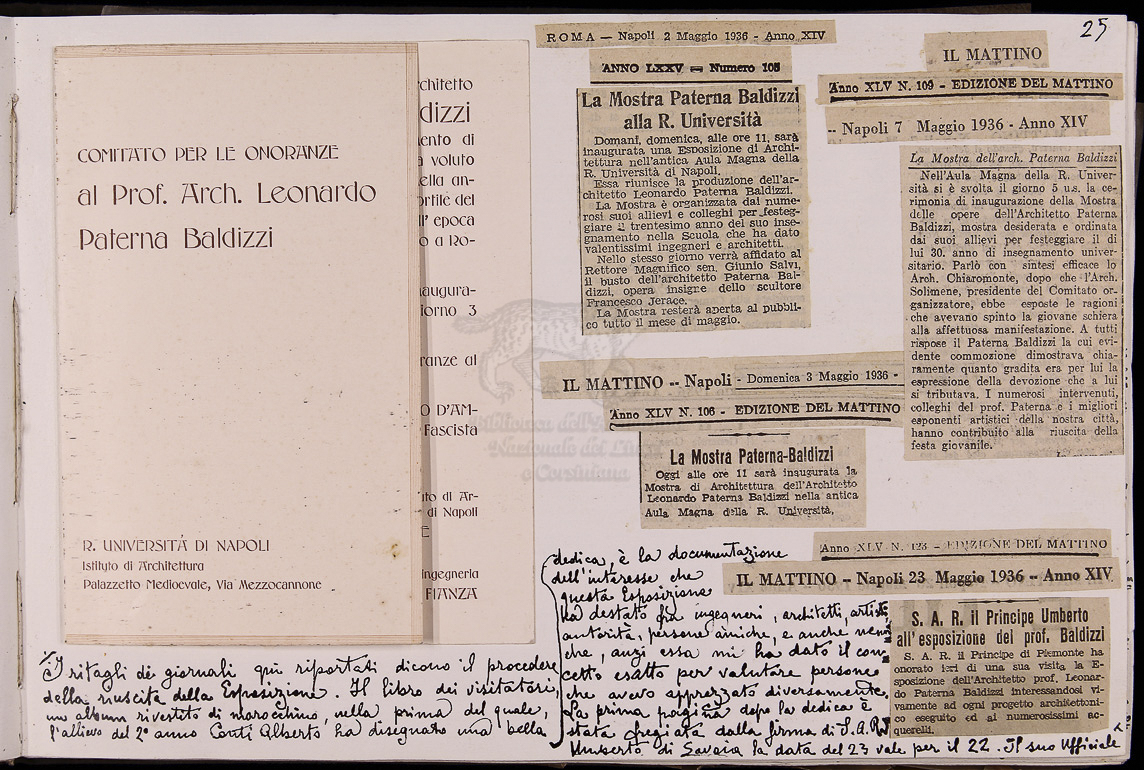 25
COMITATO PER LE ONORANZE
al Prof. Arch. Leonardo
Paterna Baldizzi
R. UNIVERSITÁ DI NAPOLI
Istituto di Architettura
Palazzetto Medioevale, Via Mezzocannone
chitetto
dizzi
ento di
à voluto
ella an-
ortile del
ll' epoca
o a Ro-
augura-
iorno 3
ranze al
O D'AM-
Fascista
di Ar-
di Napoli
E
ngegneria
FIANZA
ROMA — Napoli 2 Maggio 1936 - Anno XIV
ANNO LXXV — Numero 105
La Mostra Paterna Baldizzi
alla R. Università
Domani, domenica, alle ore 11, sarà
inaugurata una Esposizione di Archi-
tettura nell'antica Aula Magna della
R. Università di Napoli.
Essa riunisce la produzione dell'ar-
chitetto Leonardo Paterna Baldizzi.
La Mostra è organizzata dai nume-
rosi suoi allievi e colleghi per festeg-
giare il trentesimo anno del suo inse-
gnamento nella Scuola che ha dato
valentissimi ingegneri e architetti.
Nello stesso giorno verrà affidato al
Rettore Magnifico sen. Giunio Salvi,
il busto dell'architetto Paterna Bal-
dizzi, opera insigne dello scultore
Francesco Jerace.
La Mostra resterà aperta al pubbli-
co tutto il mese di maggio.
IL MATTINO
Anno XLV N. 109 - EDIZIONE DEL MATTINO
-- Napoli 7 Maggio 1936 - Anno XIV
La Mostra dell'arch. Paterna Baldizzi
Nell'Aula Magna della R. Univer-
sità si è svolta il giorno 5 u.s. la ce-
rimonia di inaugurazione della Mostra
delle opere dell'Architetto Paterna
Baldizzi, mostra desiderata e ordinata
dai suoi allievi per festeggiare il di
lui 30. anno di insegnamento univer-
sitario. Parlò con sintesi efficace lo
Arch. Chiaromonte, dopo che l'Arch.
Solimene, presidente del Comitato or-
ganizzatore, ebbe esposte le ragioni
che avevano spinto la giovane schiera
alla affettuosa manifestazione. A tutti
rispose il Paterna Baldizzi la cui evi-
dente commozione dimostrava chia-
ramente quanto gradita era per lui la
espressione della devozione che a lui
si tributava. I numerosi intervenuti,
colleghi del prof. Paterna e i migliori
esponenti artistici della nostra città,
hanno contribuito alla riuscita della
festa giovanile.
IL MATTINO -- Napoli - Domenica 3 Maggio 1936 -
Anno XLV N. 106 - EDIZIONE DEL MATTINO
La Mostra Paterna-Baldizzi
Oggi alle ore 11 sarà inaugurata la
Mostra di Architettura dell'Architetto
Leonardo Paterna Baldizzi nella antica
Aula Magna della R. Università,
Anno XLV N. 123 - EDIZIONE DEL MATTINO
IL MATTINO – Napoli 23 Maggio 1936 – Anno XIV
S. A. R. il Principe Umberto
all'esposizione del prof. Baldizzi
S. A. R. il Principe di Piemonte ha
onorato ieri di una sua visita la E-
sposizione dell'Architetto prof. Leonar-
do Paterna Baldizzi interessandosi vi-
vamente ad ogni progetto architettoni-
co eseguito ed ai numerosissimi ac-
querelli.
I ritagli dei giornali quì riportati dicono il procedere
della riuscita della Esposizione. Il libro dei visitatori,
un album rivestito di marocchino, nella prima del quale,
l'allievo del 2º anno Conti Alberto ha disegnato una bella
dedica, è la documentazione
dell'interesse che
questa Esposizione
ha destato fra ingegneri, architetti, artisti,
autorità, persone amiche, e anche nemi
che, anzi essa mi ha dato il con
cetto esatto per valutare persone
che avevo apprezzato diversamente.
La prima pagina dopo la dedica è
stata fregiata dalla firma di S.A.R.
Umberto di Savoia la data del 23 vale per il 22. Il suo Ufficiale
Biblioteca dell'A
Nazionale dei Lincei
e Corsiniana